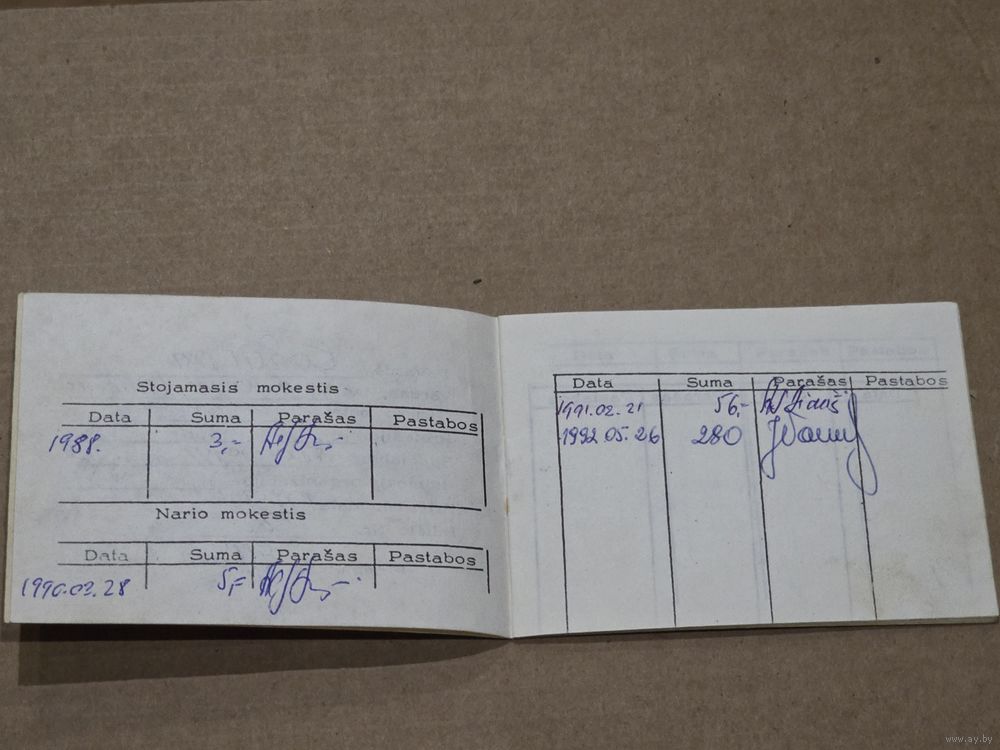 Stojamasis mokestis
Data Suma Parašas Pastabos
1988. 3,-
Nario mokestis
Data Suma Parašas Pastabos
1990.02.28 5,-
Data Suma Parašas Pastabos
1991.02.21 56,-
1992.05.26 280
www.ay.by